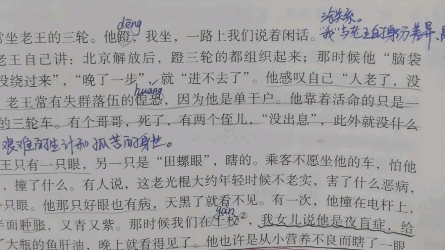 dēng
没关系。
常坐老王的三轮。他蹬,我坐,一路上我们说着闲话。
"我"与老王的身份差异
老王自己讲:北京解放后,蹬三轮的都组织起来;那时候他"脑袋
没绕过来","晚了一步",就"进不去了"。他感叹自己"人老了,没
huáng
老王常有失群落伍的惶恐,因为他是单干户。他靠着活命的只是一
的三轮车。有个哥哥,死了,有两个侄儿,"没出息",此外就没什么
艰难的生计和孤苦的身世。
王只有一只眼,另一只是"田螺眼",瞎的。乘客不愿坐他的车,怕他
,撞了什么。有人说,这老光棍大约年轻时候不老实,害了什么恶病,
一只眼。他那只好眼也有病,天黑了就看不见。有一次,他撞在电杆上,
半面肿胀,又青又紫。那时候我们在干校②,我女儿说他是夜盲症,给
gàn
了大瓶的鱼肝油,晚上就看得见了。他也许是从小营养不良而瞎了一眼